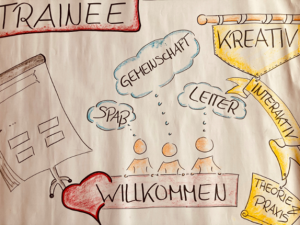 TRAINEE
KREATIV
GEMEINSCHAFT
LEITER
SPAß
INTERAKTIV
WILLKOMMEN
THEORIE
&
PRAXIS